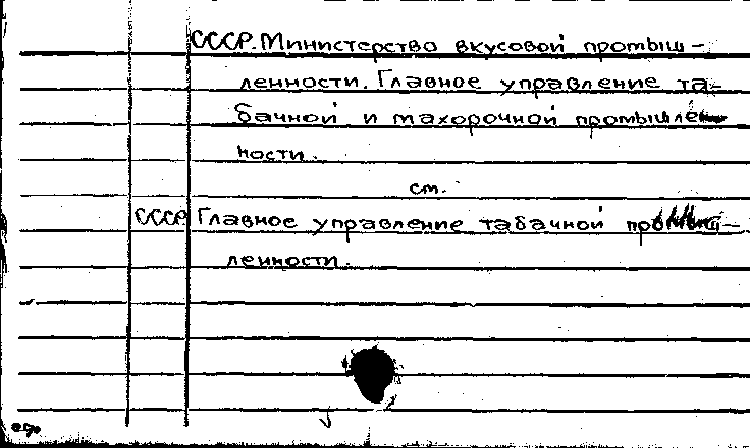 СССР. Министерство вкусовой промыш-
ленности. Главное управление та-
бачной и махорочной промышлен
ности.
см.
СССР Главное управление табачной промыш-
ленности.